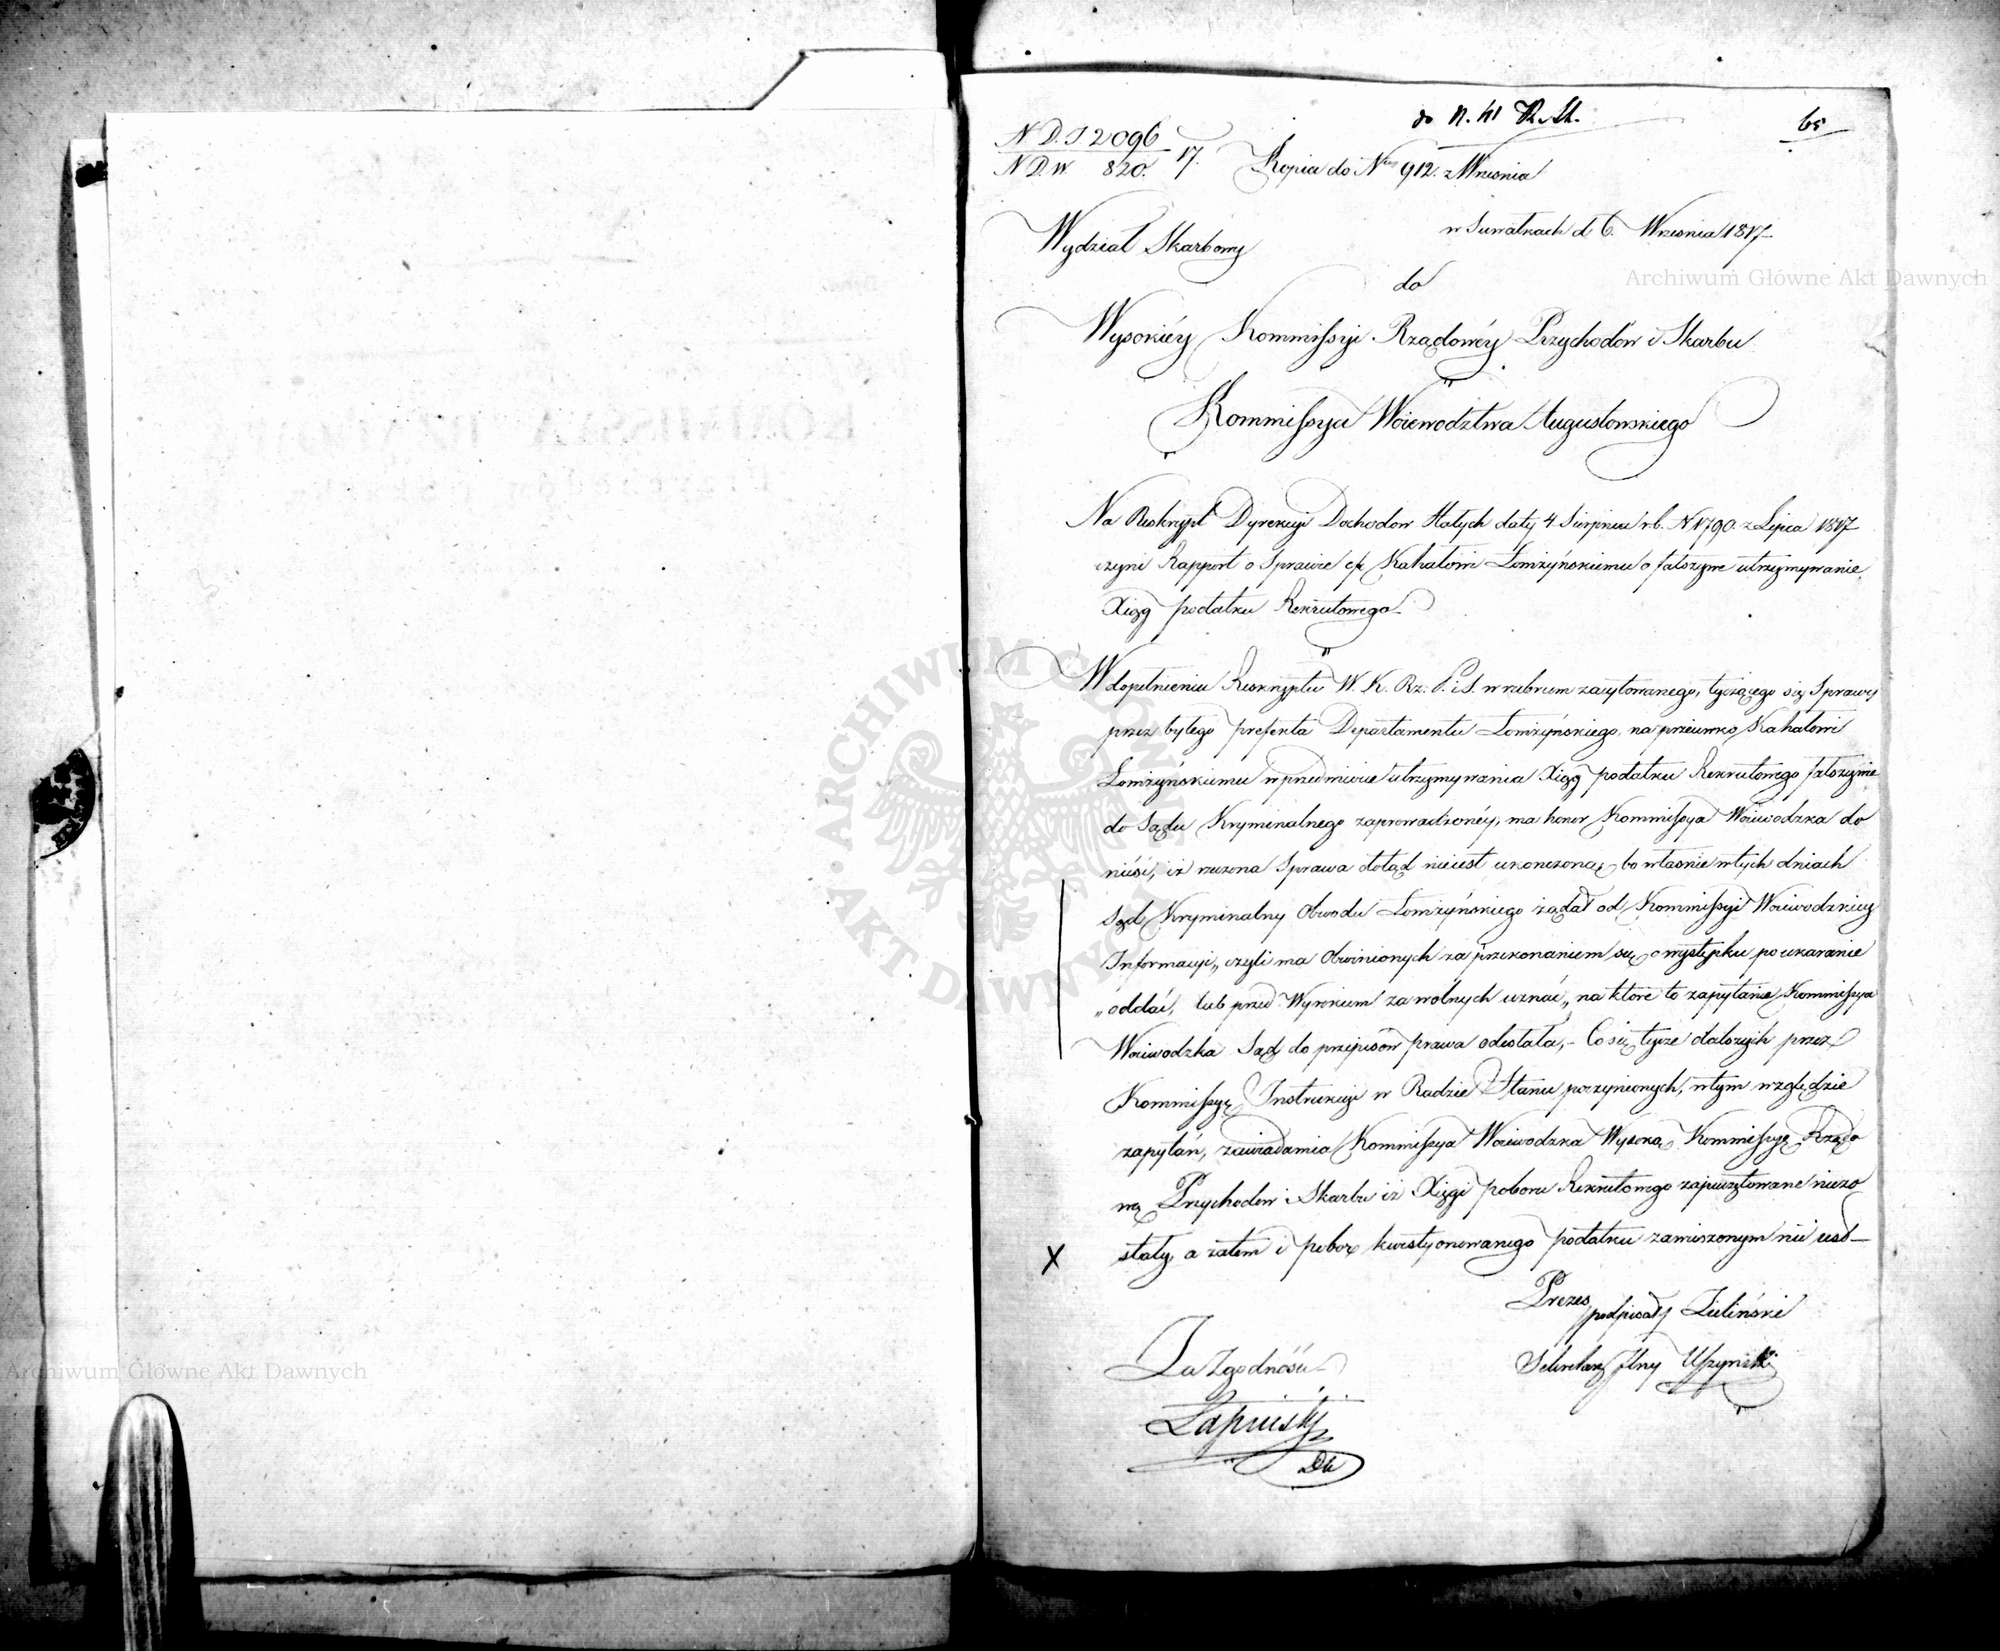 do N. 41 R. St.
65
N D. J 2096
N D. W. 820. 17.
Kopia do Nru 912. z Wrzesnia
w Suwałkach d 6. Wrzesnia 1817
Wydział Skarbowy
do
Wysokiéy Kommissyi Rządowéy Przychodów i Skarbu
Kommissya Woiewodztwa Augustowskiego
Na Reskrypt Dyrekcyi Dochodow Stałych daty 4 Sierpnia r b. N 1790. z Lipca 1817
czyni Rapport o Sprawie Kahałowi Łomżyńskiemu o fałszywe utrzymywanie
Xiąg podatku Rekrutowego.
W dopełnieniu Reskryptu W. K. Rz. P. i S. w rubrum zacytowanego, tyczącego się Sprawy
przez byłego prefekta Departamentu Łomżyńskiego, na przeciwko Kahałowi
Łomżyńskiemu w przedmiocie utrzymywania Xiąg podatku Rekrutowego fałszywie
do Sądu Kryminalnego zaprowadzonéy, ma honor Kommissya Woiewodzka do
nieść, iż rzeczona Sprawa dotąd nieiest ukonczoną, bo własnie w tych dniach
Sąd Kryminalny Obwodu Łomżyńskiego żądał od Kommissyi Woiewodzkiey
Informacyi „ czyli ma Obwinionych za przekonaniem się o występku po ukaranie
„ oddać, lub przed Wyrokiem za wólnych uznać „ na które to zapytanie Kommissya
Woiewodzka Sąd do przepisów prawa odesłała, - Co się tycze dalszych przez
Kommissyę Instrukcyi w Radzie Stanu poczynionych, w tym względzie
zapytań, zawiadamia Kommissya Woiewodzka Wysoką Kommissyę Rządo
wą Przychodow i Skarbu iż Xięgi poboru Rekrutowego zapieczętowane niezo
stały, a zatem i pobor kwestyonowanego podatku zawieszonym nie iest
X
Prezes
podpisały Zieliński
Sekretarz Jlny
Za Zgodność
Łapiński